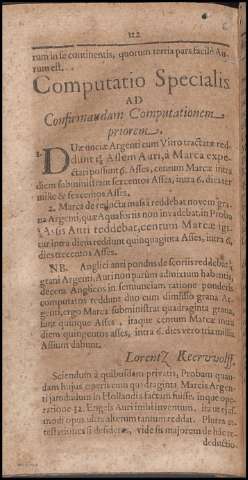 122
rum in se continentis, quorum tertia pars facile Au-
rum est.
Computatio Specialis
AD
Confirmandam Computationem
priorem.
1. DUæ unciæ Argenti cum Vitro tractatæ red-
dunt Assem Auri, à Marca expe-
ctari possunt 6. Asses, centum Marcæ intra
diem subministrant sexcentos Asses, intra 6. dies ter
mille & sexcentos Asses.
2. Marca de reducta massa reddebat novem gra-
na Argenti, quæ Aqua fortis non invadebat, in Proba
5 Assis Auri reddebat, centum Marcæ igi-
tur intra diem reddunt quinquaginta Asses, intra 6,
dies trecentos Asses.
NB. Anglici ani pondus de scoriis reddebat
grani Argenti, Auri non parùm admixtum habentis,
decem Anglicos in semunciam ratione ponderis
computatos reddunt duo cum dimisso grana Ar-
genti, ergo Marca subministrat quadraginta grana,
sunt quinque Asses, itaque centum Marcæ intra
diem quingentos asses, intra 6. dies vero tria millia
Assium dabunt.
Lorentz Keerwolff.
Sciendum à quibusdam privatis, Probam quan-
dam hujus operis cum quadraginta Marcis Argen-
ti jamdudum in Hollandia factam fuisse, inque ope-
ratione 32. Engels Auri inibi inventum, ita ut ejus-
modi opus ultra alterum tantum reddat. Plures at-
testationes si desideres, vide sis majorem de hâc re
deductio-